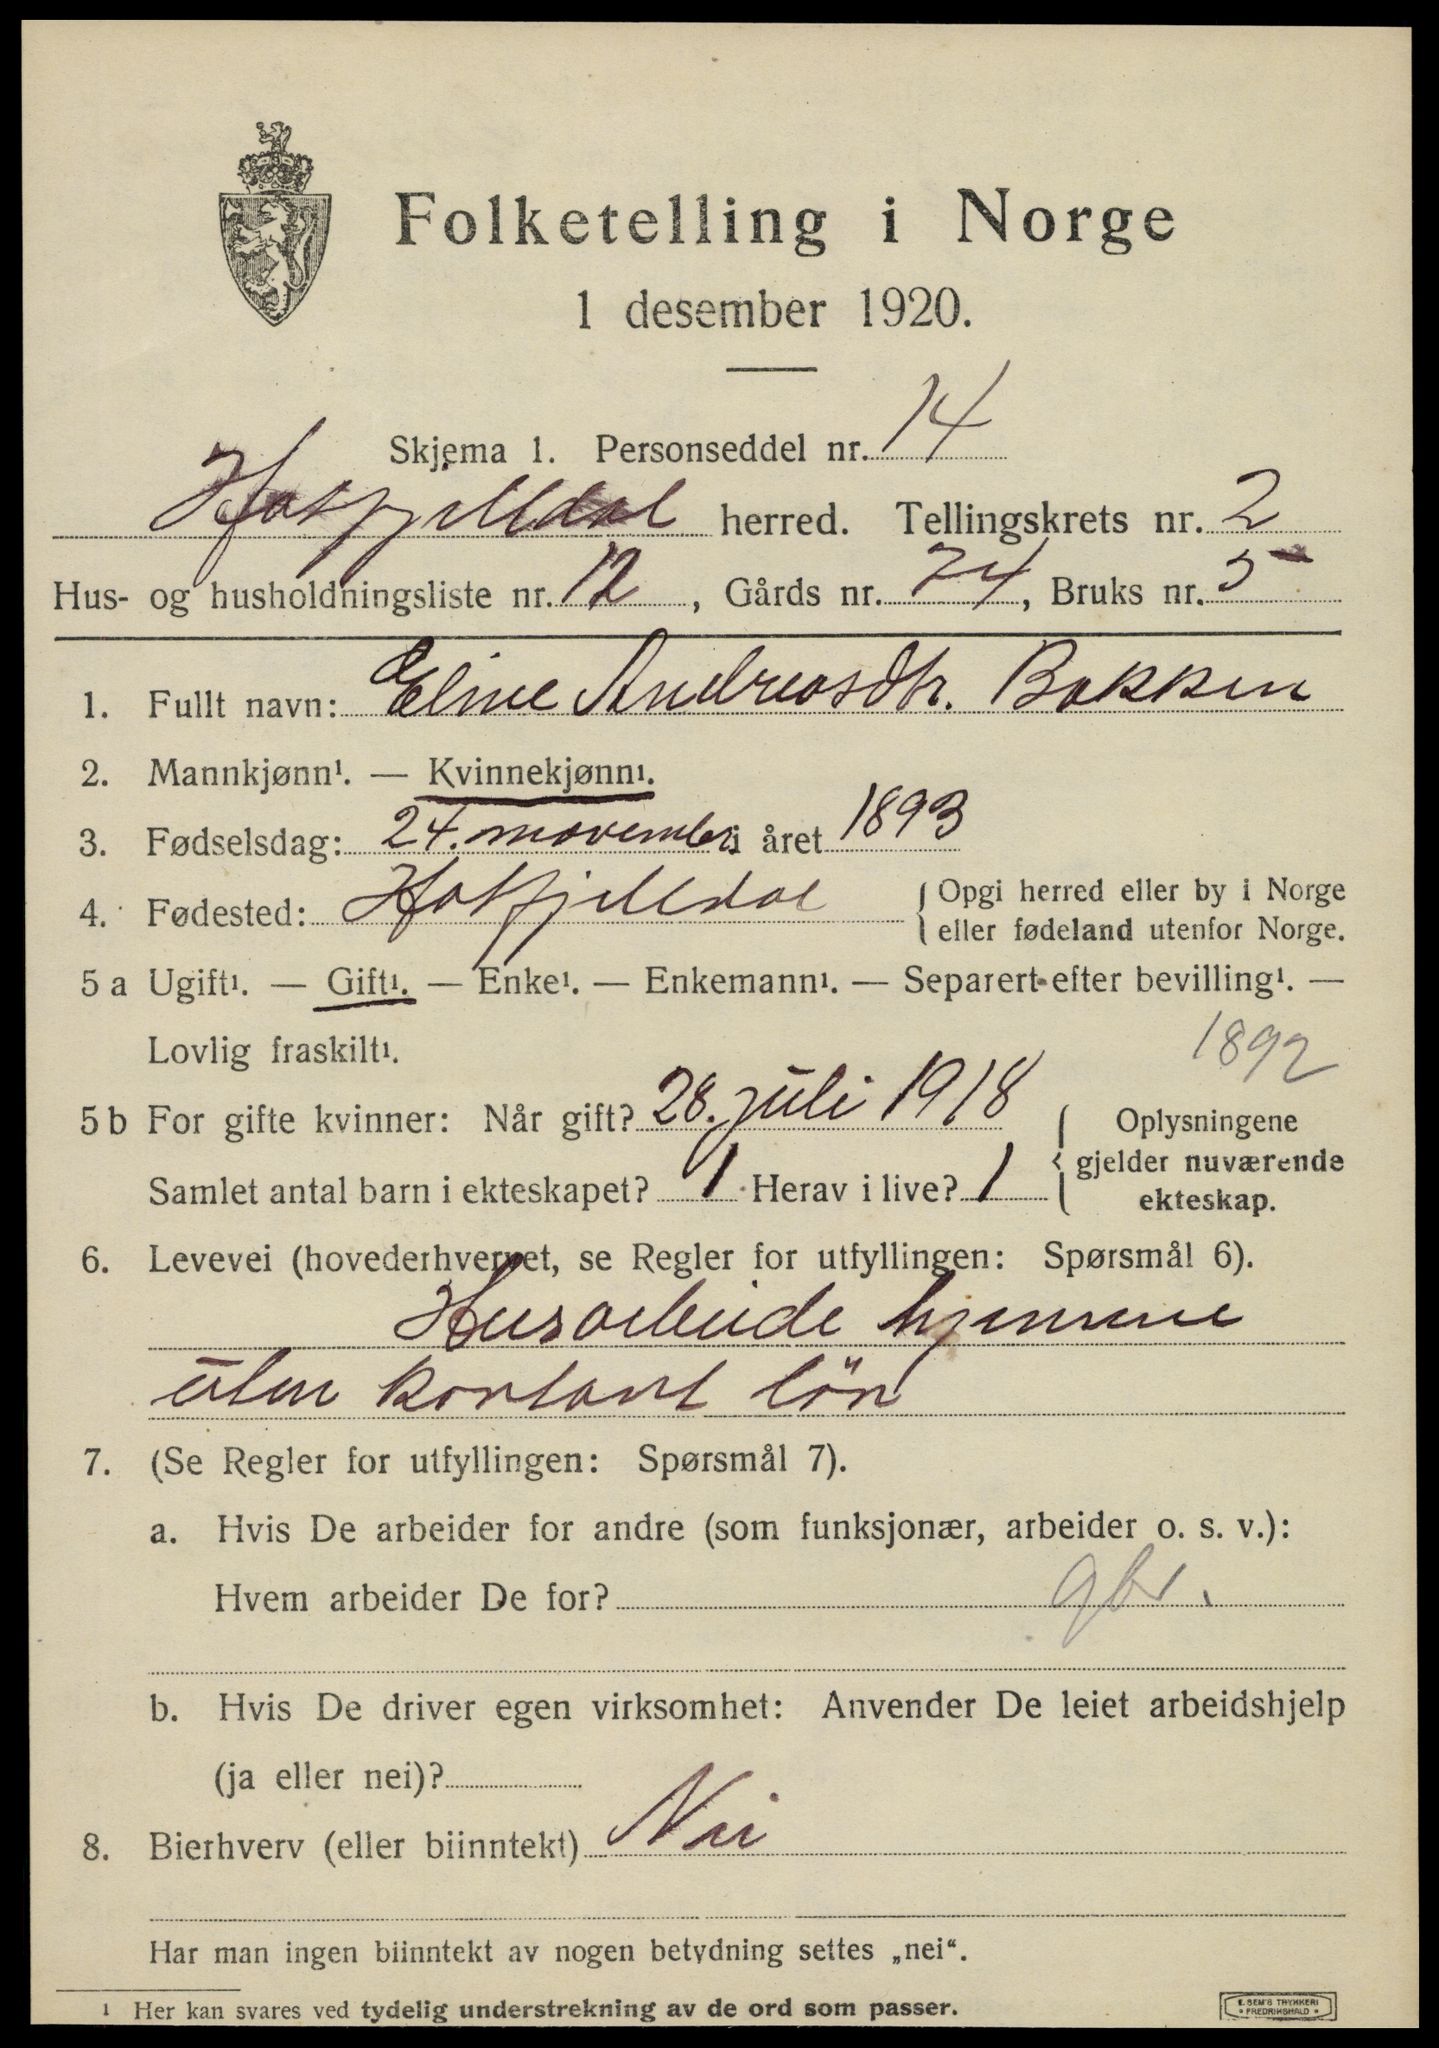 Folketelling i Norge
1 desember 1920.
Skjema 1. Personseddel nr. 14
Hatfjelldal herred. Tellingskrets nr. 2
Hus- og husholdningsliste nr. 12, Gårds nr. 74, Bruks nr. 5
1. Fullt navn: Eline Andreasdtr. Bakken
2. Mannkjønn¹. — Kvinnekjønn¹.
3. Fødselsdag: 24. november i året 1893
4. Fødested: Hatfjelldal {Opgi herred eller by i Norge
eller fødeland utenfor Norge.
5 a Ugift¹. — Gift¹. — Enke¹. — Enkemann¹. — Separert efter bevilling¹. —
Lovlig fraskilt¹.
1892
5 b For gifte kvinner: Når gift? 28. juli 1918 { Oplysningene
gjelder nuværende
Samlet antal barn i ekteskapet? 1 Herav i live? 1
ekteskap.
6. Levevei (hovederhvervet, se Regler for utfyllingen: Spørsmål 6).
Husarbeide hjemme
uten kontant løn
7. (Se Regler for utfyllingen: Spørsmål 7).
a. Hvis De arbeider for andre (som funksjonær, arbeider o. s. v.):
Hvem arbeider De for? gbr.
b. Hvis De driver egen virksomhet: Anvender De leiet arbeidshjelp
(ja eller nei)?
8. Bierhverv (eller biinntekt) Nei
Har man ingen biinntekt av nogen betydning settes „nei“.
¹ Her kan svares ved tydelig understrekning av de ord som passer.
E. SEM'S TRYKKERI
FREDRIKSHALD